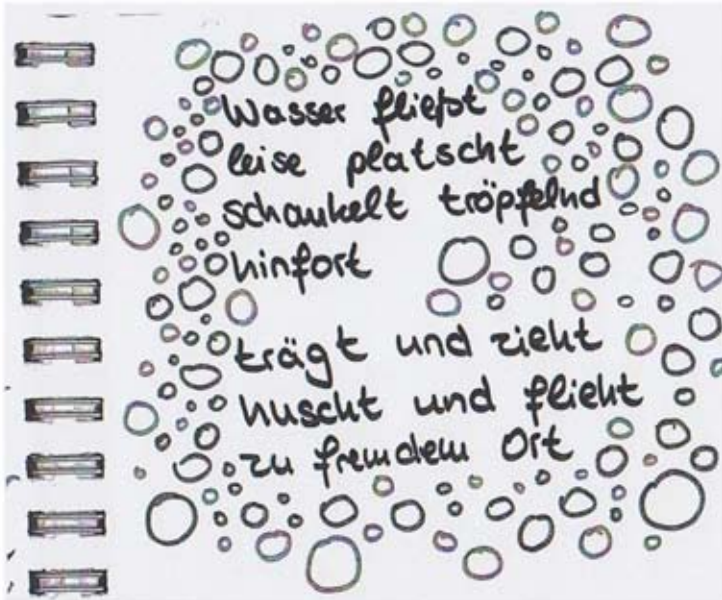 Wasser fließt
leise platscht
schaukelt tröpfelnd
hinfort
trägt und zieht
huscht und flieht
zu fremdem Ort